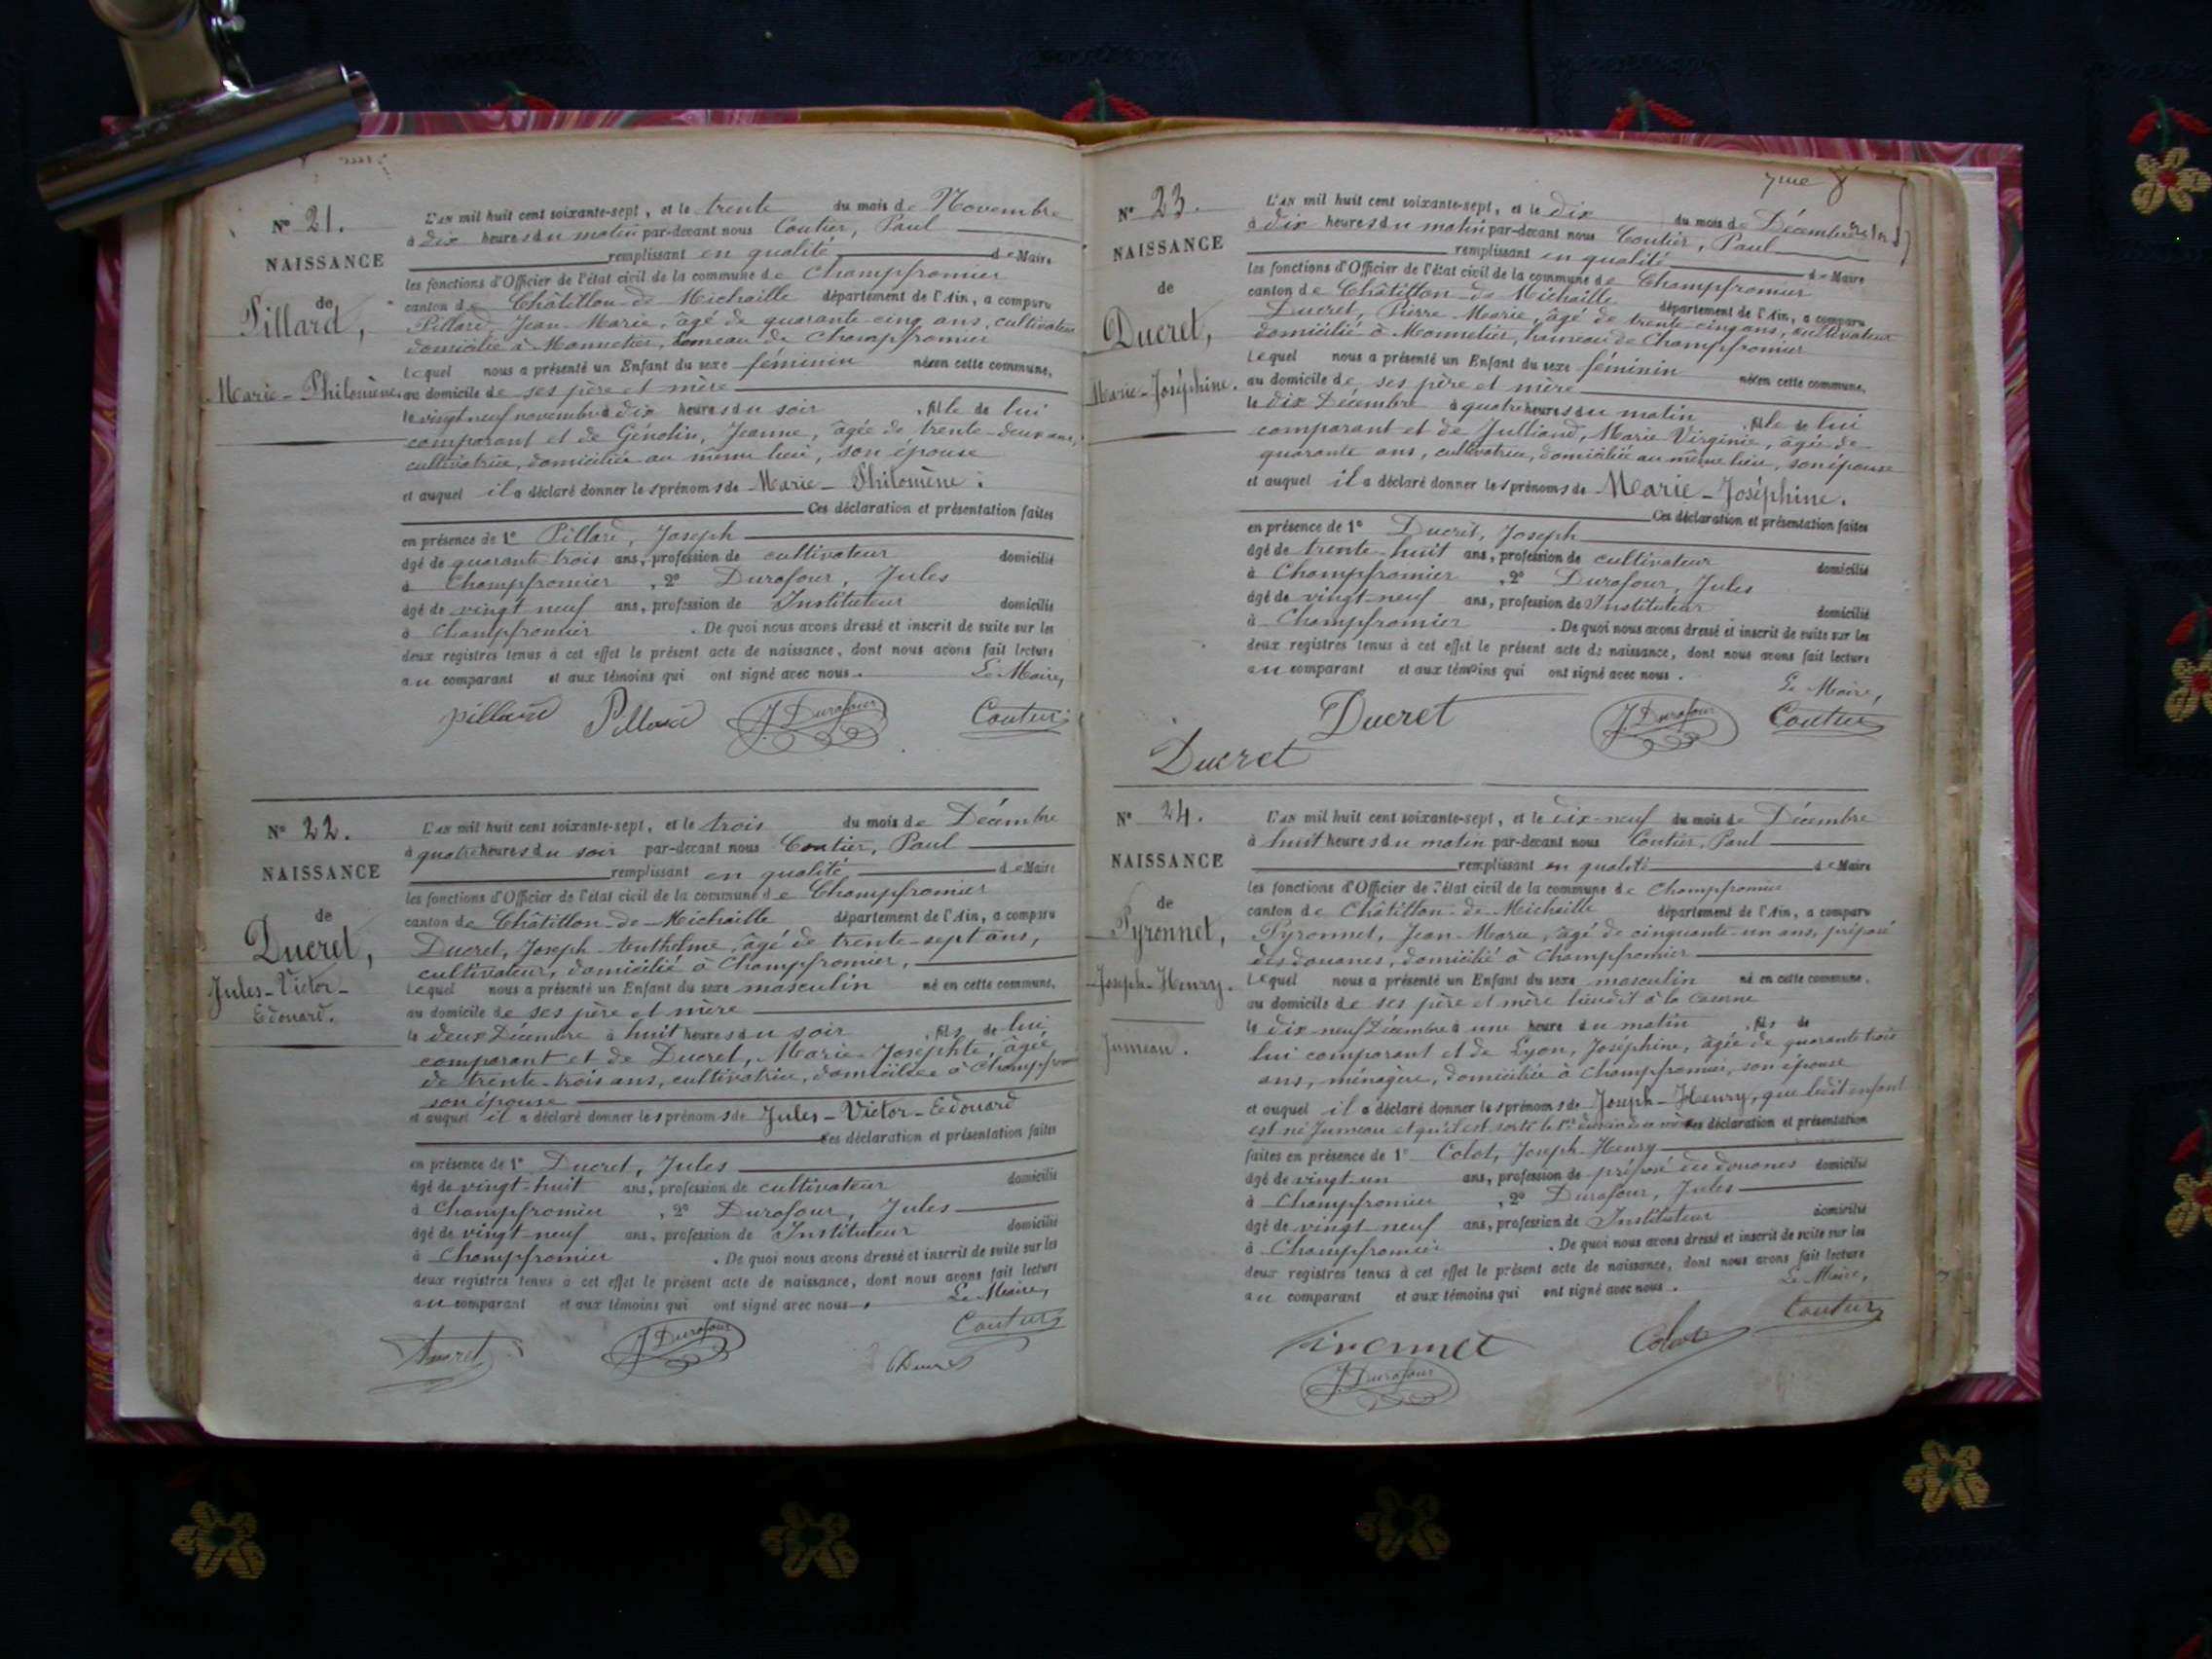 N° 21.
NAISSANCE
de
Pillard,
Marie-Philomène.
L'an mil huit cent soixante-sept, et le trente du mois de Novembre
à dix heures du matin par-devant nous Coutier, Paul
remplissant en qualité de Maire
les fonctions d'Officier de l'état civil de la commune de Champfromier
canton de Châtillon-de-Michaille département de l'Ain, a comparu
Pillard, Jean-Marie, âgé de quarante cinq ans, cultivateur
domicilié à Monnetier, hameau de Champfromier
Lequel nous a présenté un Enfant du sexe féminin née en cette commune,
au domicile de ses père et mère
le vingt neuf novembre à dix heures du soir, fille de lui
comparant et de Génolin, Jeanne, âgée de trente-deux ans,
cultivatrice, domiciliée au même lieu, son épouse
et auquel il a déclaré donner les prénoms de Marie-Philomène.
Ces déclaration et présentation faites
en présence de 1° Pillard, Joseph
âgé de quarante trois ans, profession de cultivateur domicilié
à Champfromier, 2° Durafour, Jules
âgé de vingt neuf ans, profession de Instituteur domicilié
à Champfromier. De quoi nous avons dressé et inscrit de suite sur les
deux registres tenus à cet effet le présent acte de naissance, dont nous avons fait lecture
au comparant et aux témoins qui ont signé avec nous.
Le Maire,
pillard Pillard J. Durafour Coutier
N° 22.
NAISSANCE
de
Ducret,
Jules-Victor-
Edouard.
L'an mil huit cent soixante-sept, et le trois du mois de Décembre
à quatre heures du soir par-devant nous Coutier, Paul
remplissant en qualité de Maire
les fonctions d'Officier de l'état civil de la commune de Champfromier
canton de Châtillon-de-Michaille département de l'Ain, a comparu
Ducret, Joseph Anthelme, âgé de trente-sept ans,
cultivateur, domicilié à Champfromier,
Lequel nous a présenté un Enfant du sexe masculin né en cette commune,
au domicile de ses père et mère
le deux Décembre à huit heures du soir, fils de lui
comparant et de Ducret, Marie-Josephte, âgée
de trente-trois ans, cultivatrice, domiciliée à Champfromier
son épouse
et auquel il a déclaré donner les prénoms de Jules-Victor-Edouard
Ces déclaration et présentation faites
en présence de 1° Ducret, Jules
âgé de vingt-huit ans, profession de cultivateur domicilié
à Champfromier, 2° Durafour, Jules
âgé de vingt-neuf ans, profession de Instituteur domicilié
à Champfromier. De quoi nous avons dressé et inscrit de suite sur les
deux registres tenus à cet effet le présent acte de naissance, dont nous avons fait lecture
au comparant et aux témoins qui ont signé avec nous.
Le Maire,
Ducret J. Durafour Coutier
7me
N° 23.
NAISSANCE
de
Ducret,
Marie-Joséphine.
L'an mil huit cent soixante-sept, et le dix du mois de Décembre
à dix heures du matin par-devant nous Coutier, Paul
remplissant en qualité de Maire
les fonctions d'Officier de l'état civil de la commune de Champfromier
canton de Châtillon-de-Michaille département de l'Ain, a comparu
Ducret, Pierre-Marie, âgé de trente-cinq ans, cultivateur
domicilié à Monnetier, hameau de Champfromier
Lequel nous a présenté un Enfant du sexe féminin née en cette commune,
au domicile de ses père et mère
le dix Décembre à quatre heures du matin, fille de lui
comparant et de Julliand, Marie Virginie, âgée de
quarante ans, cultivatrice, domiciliée au même lieu, son épouse
et auquel il a déclaré donner les prénoms de Marie-Joséphine.
Ces déclaration et présentation faites
en présence de 1° Ducret, Joseph
âgé de trente-huit ans, profession de cultivateur domicilié
à Champfromier, 2° Durafour, Jules
âgé de vingt-neuf ans, profession de Instituteur domicilié
à Champfromier. De quoi nous avons dressé et inscrit de suite sur les
deux registres tenus à cet effet le présent acte de naissance, dont nous avons fait lecture
au comparant et aux témoins qui ont signé avec nous.
Le Maire,
Ducret J. Durafour Coutier
Ducret
N° 24.
NAISSANCE
de
Pyronnet,
Joseph-Henry.
Jumeau.
L'an mil huit cent soixante-sept, et le dix-neuf du mois de Décembre
à huit heures du matin par-devant nous Coutier, Paul
remplissant en qualité de Maire
les fonctions d'Officier de l'état civil de la commune de Champfromier
canton de Châtillon-de-Michaille département de l'Ain, a comparu
Pyronnet, Jean-Marie, âgé de cinquante-un ans, préposé
des douanes, domicilié à Champfromier
Lequel nous a présenté un Enfant du sexe masculin né en cette commune,
au domicile de ses père et mère lieudit à la Caserne
le dix-neuf Décembre à une heure du matin, fils de
lui comparant et de Lyon, Joséphine, âgée de quarante trois
ans, ménagère, domiciliée à Champfromier, son épouse
et auquel il a déclaré donner les prénoms de Joseph-Henry, que ledit enfant
est né Jumeau et qu'il est sorti le 1er du sein de sa mère Ces déclaration et présentation
faites en présence de 1° Colot, Joseph-Henry
âgé de vingt-un ans, profession de préposé des douanes domicilié
à Champfromier, 2° Durafour, Jules
âgé de vingt-neuf ans, profession de Instituteur domicilié
à Champfromier. De quoi nous avons dressé et inscrit de suite sur les
deux registres tenus à cet effet le présent acte de naissance, dont nous avons fait lecture
au comparant et aux témoins qui ont signé avec nous.
Le Maire,
Colot Coutier
J. Durafour